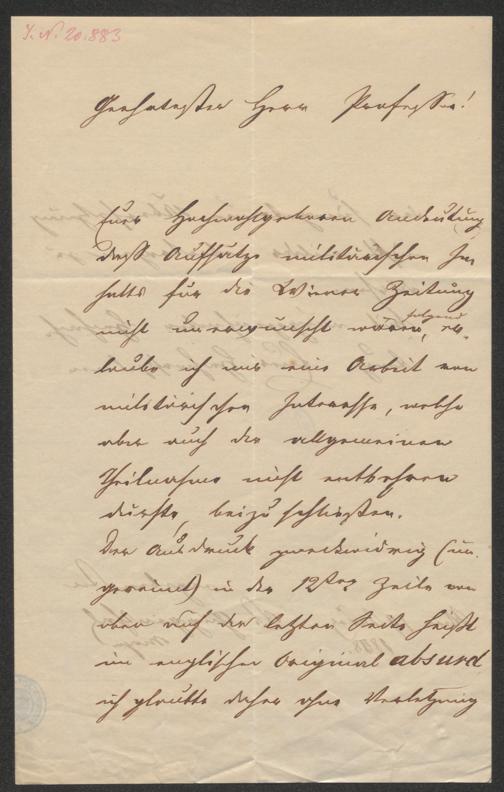 I. N. 20.883
Geehrtester Herr Professor!
Euer Hochwohlgeboren Andeutung
daß Aufsätze militärischen In-
halts für die Wiener Zeitung
nicht unerwünscht wären, folgend er-
laube ich mir eine Arbeit von
militärischem Interesse, welche
aber auch der allgemeinen
Theilnahme nicht entbehren
dürfte, beizuschließen.
Der Ausdruck zweckwidrig (un-
gereimt) in der 12ten Zeile von
oben auf der letzten Seite heißt
im englischen Original absurd,
ich glaubte daher ohne Verletzung